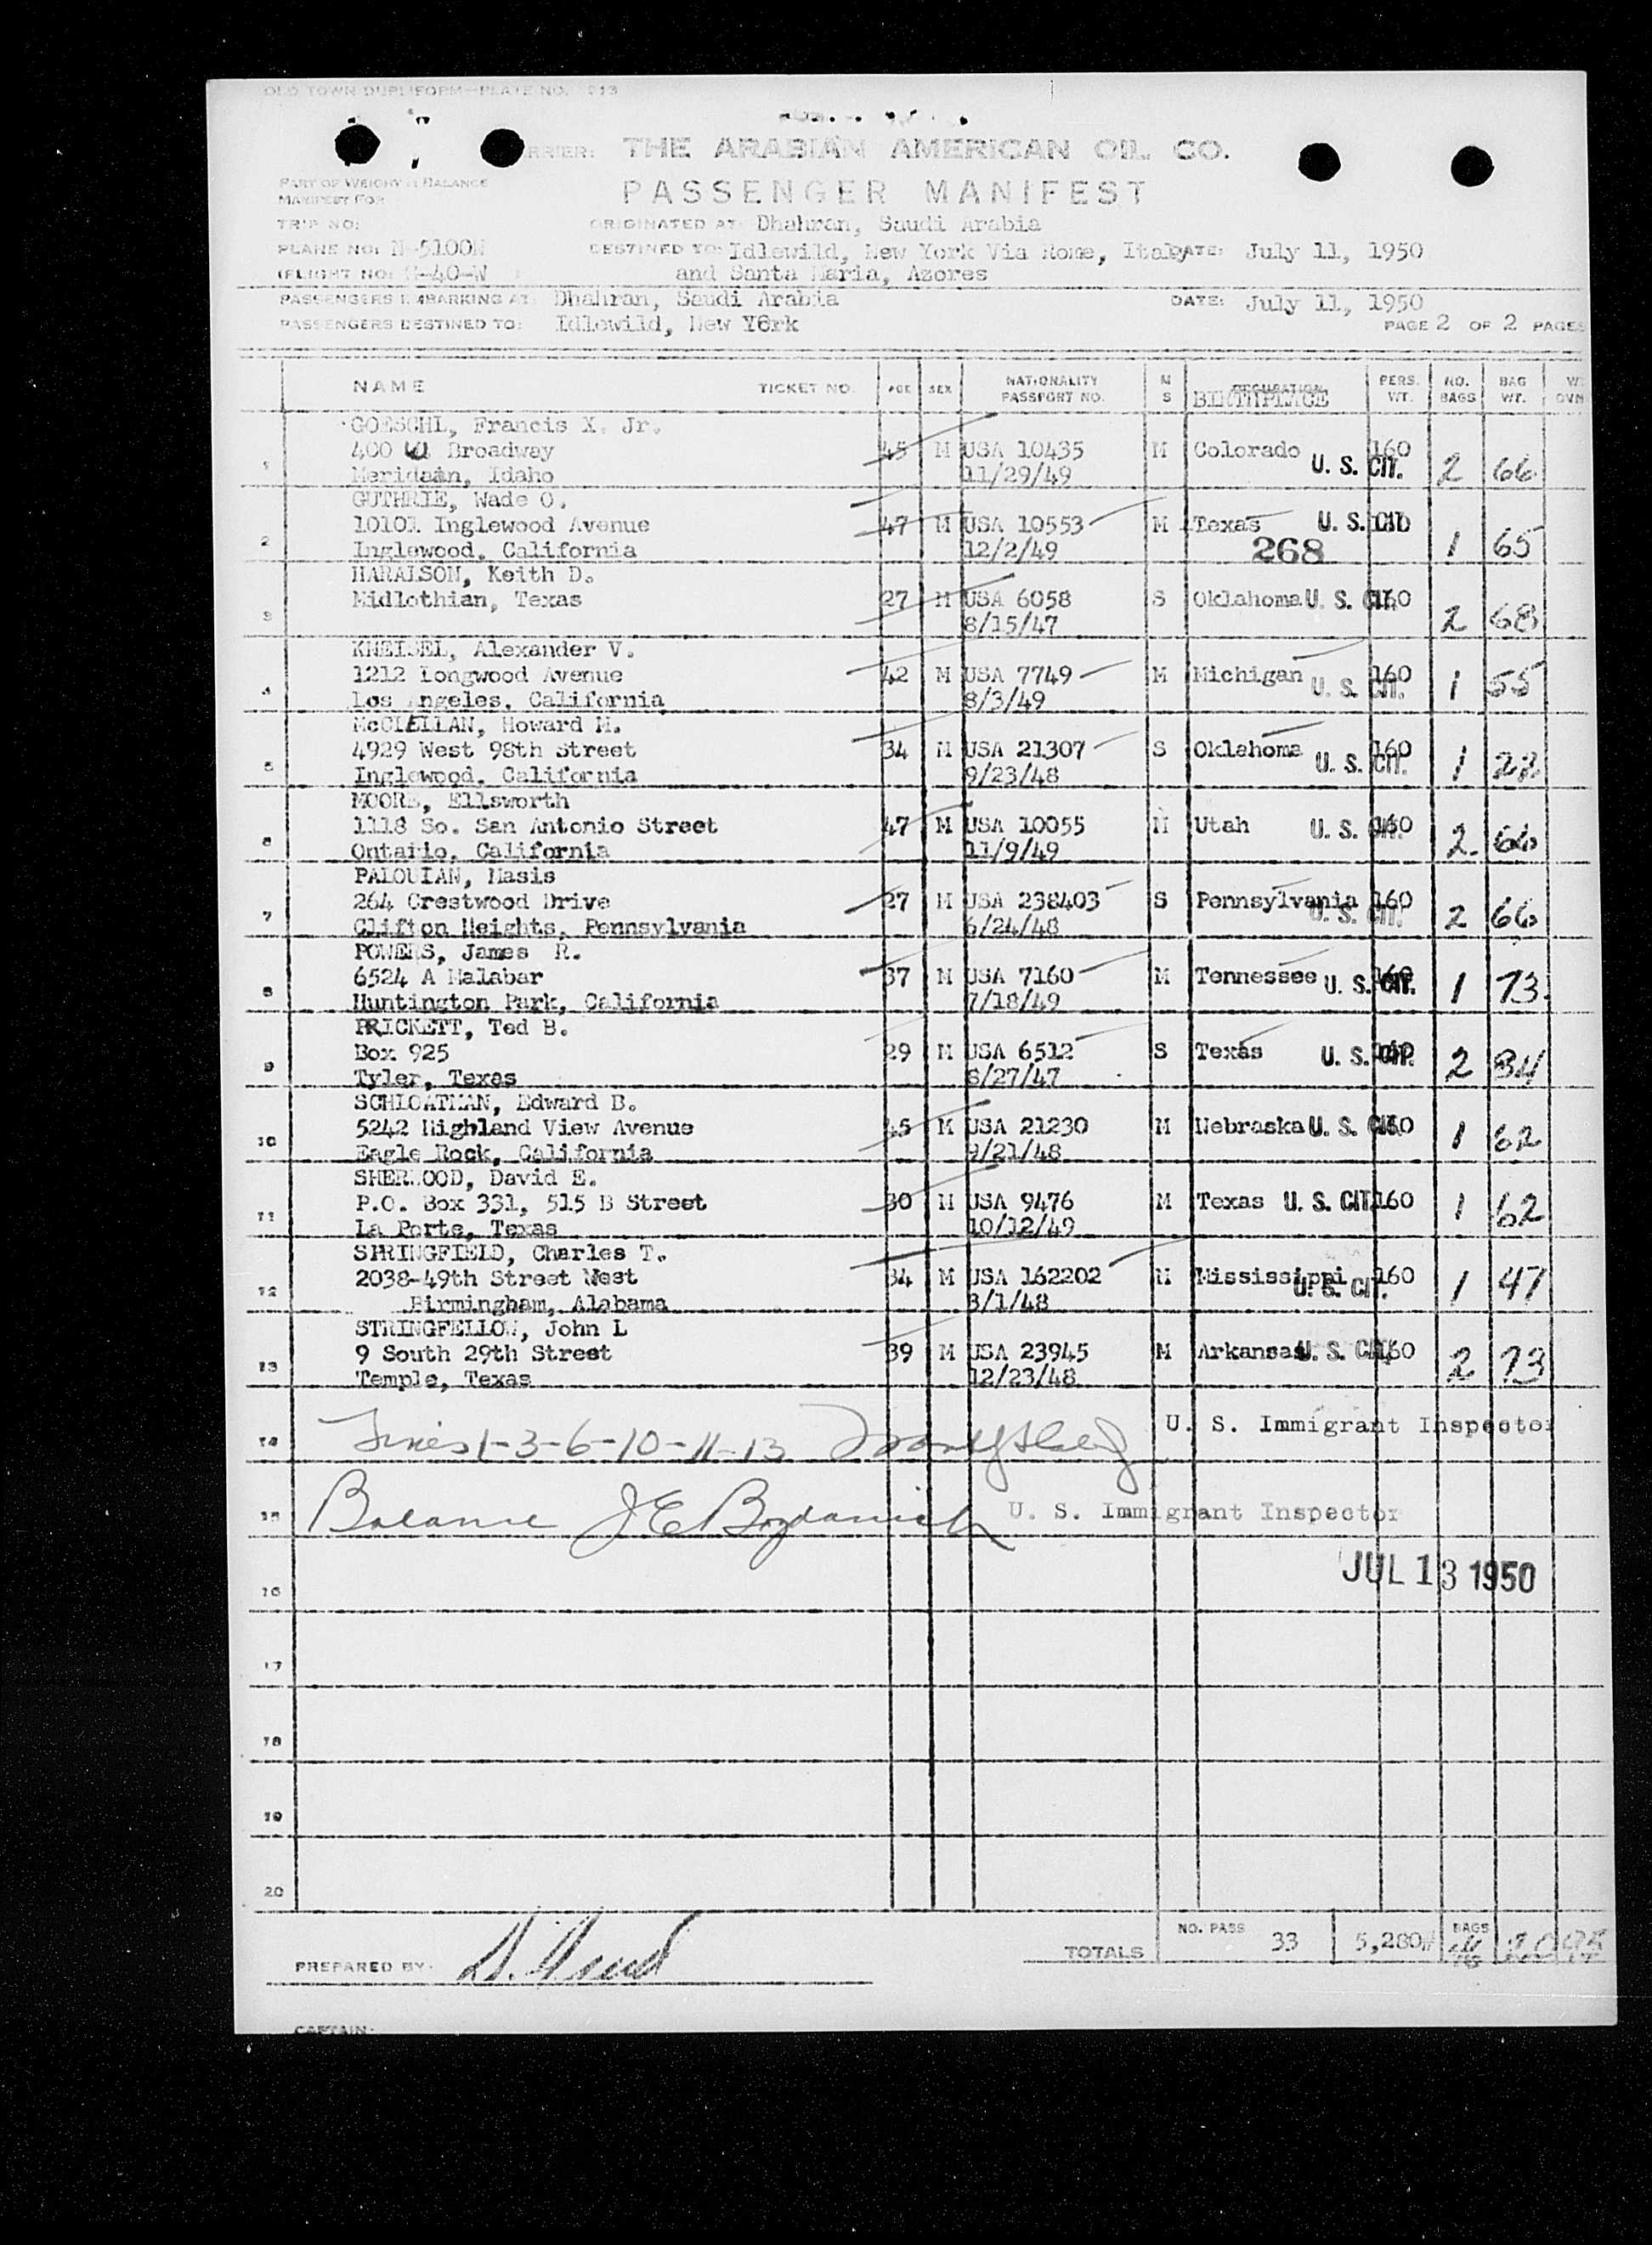 OLD TOWN DUPLIFORM—PLATE NO. 213
CARRIER: THE ARABIAN AMERICAN OIL CO.
PART OF WEIGHT & BALANCE
MANIFEST FOR
PASSENGER MANIFEST
TRIP NO: ORIGINATED AT: Dhahran, Saudi Arabia
PLANE NO: N-5100N DESTINED TO: Idlewild, New York Via Rome, Italy DATE: July 11, 1950
(FLIGHT NO: -40-W and Santa Maria, Azores
PASSENGERS EMBARKING AT: Dhahran, Saudi Arabia DATE: July 11, 1950
PASSENGERS DESTINED TO: Idlewild, New York PAGE 2 OF 2 PAGES
NAME TICKET NO. AGE SEX NATIONALITY PASSPORT NO. M S OCCUPATION BIRTHPLACE PERS. WT. NO. BAGS BAG WT.
GOESCHL, Francis X. Jr.
1 400 W Broadway 45 M USA 10435 M Colorado 160 U. S. CIT. 2 66
Meridain, Idaho 11/29/49
GUTHRIE, Wade O.
2 10101 Inglewood Avenue 47 M USA 10553 M Texas U. S. CIT. 1 65
Inglewood, California 12/2/49 268
HARALSON, Keith D.
3 Midlothian, Texas 27 M USA 6058 S Oklahoma U. S. CIT. 160 2 68
8/15/47
KNEISEL, Alexander V.
4 1212 Longwood Avenue 42 M USA 7749 M Michigan U. S. CIT. 160 1 55
Los Angeles, California 8/3/49
McCLELLAN, Howard M.
5 4929 West 98th Street 34 M USA 21307 S Oklahoma U. S. CIT. 160 1 22
Inglewood, California 9/23/48
MOORE, Ellsworth
6 1118 So. San Antonio Street 47 M USA 10055 M Utah U. S. CIT. 160 2 66
Ontario, California 11/9/49
PALOUIAN, Masis
7 264 Crestwood Drive 27 M USA 238403 S Pennsylvania U. S. CIT. 160 2 66
Clifton Heights, Pennsylvania 6/24/48
POWERS, James R.
8 6524 A Malabar 37 M USA 7160 M Tennessee U. S. CIT. 160 1 73
Huntington Park, California 7/18/49
PRICKETT, Ted B.
9 Box 925 29 M USA 6512 S Texas U. S. CIT. 160 2 84
Tyler, Texas 8/27/47
SCHLOATMAN, Edward B.
10 5242 Highland View Avenue 45 M USA 21230 M Nebraska U. S. CIT. 160 1 62
Eagle Rock, California 9/21/48
SHERWOOD, David E.
11 P.O. Box 331, 515 B Street 30 M USA 9476 M Texas U. S. CIT. 160 1 62
La Porte, Texas 10/12/49
SPRINGFIELD, Charles T.
12 2038-49th Street West 34 M USA 162202 M Mississippi U. S. CIT. 160 1 47
Birmingham, Alabama 3/1/48
STRINGFELLOW, John L
13 9 South 29th Street 39 M USA 23945 M Arkansas U. S. CIT. 160 2 73
Temple, Texas 12/23/48
14 Lines 1-3-6-10-11-13 U. S. Immigrant Inspector
15 Balance J E Bogdanich U. S. Immigrant Inspector
JUL 13 1950
16
17
18
19
20
TOTALS NO. PASS 33 5,280# BAGS
PREPARED BY:
CAPTAIN: